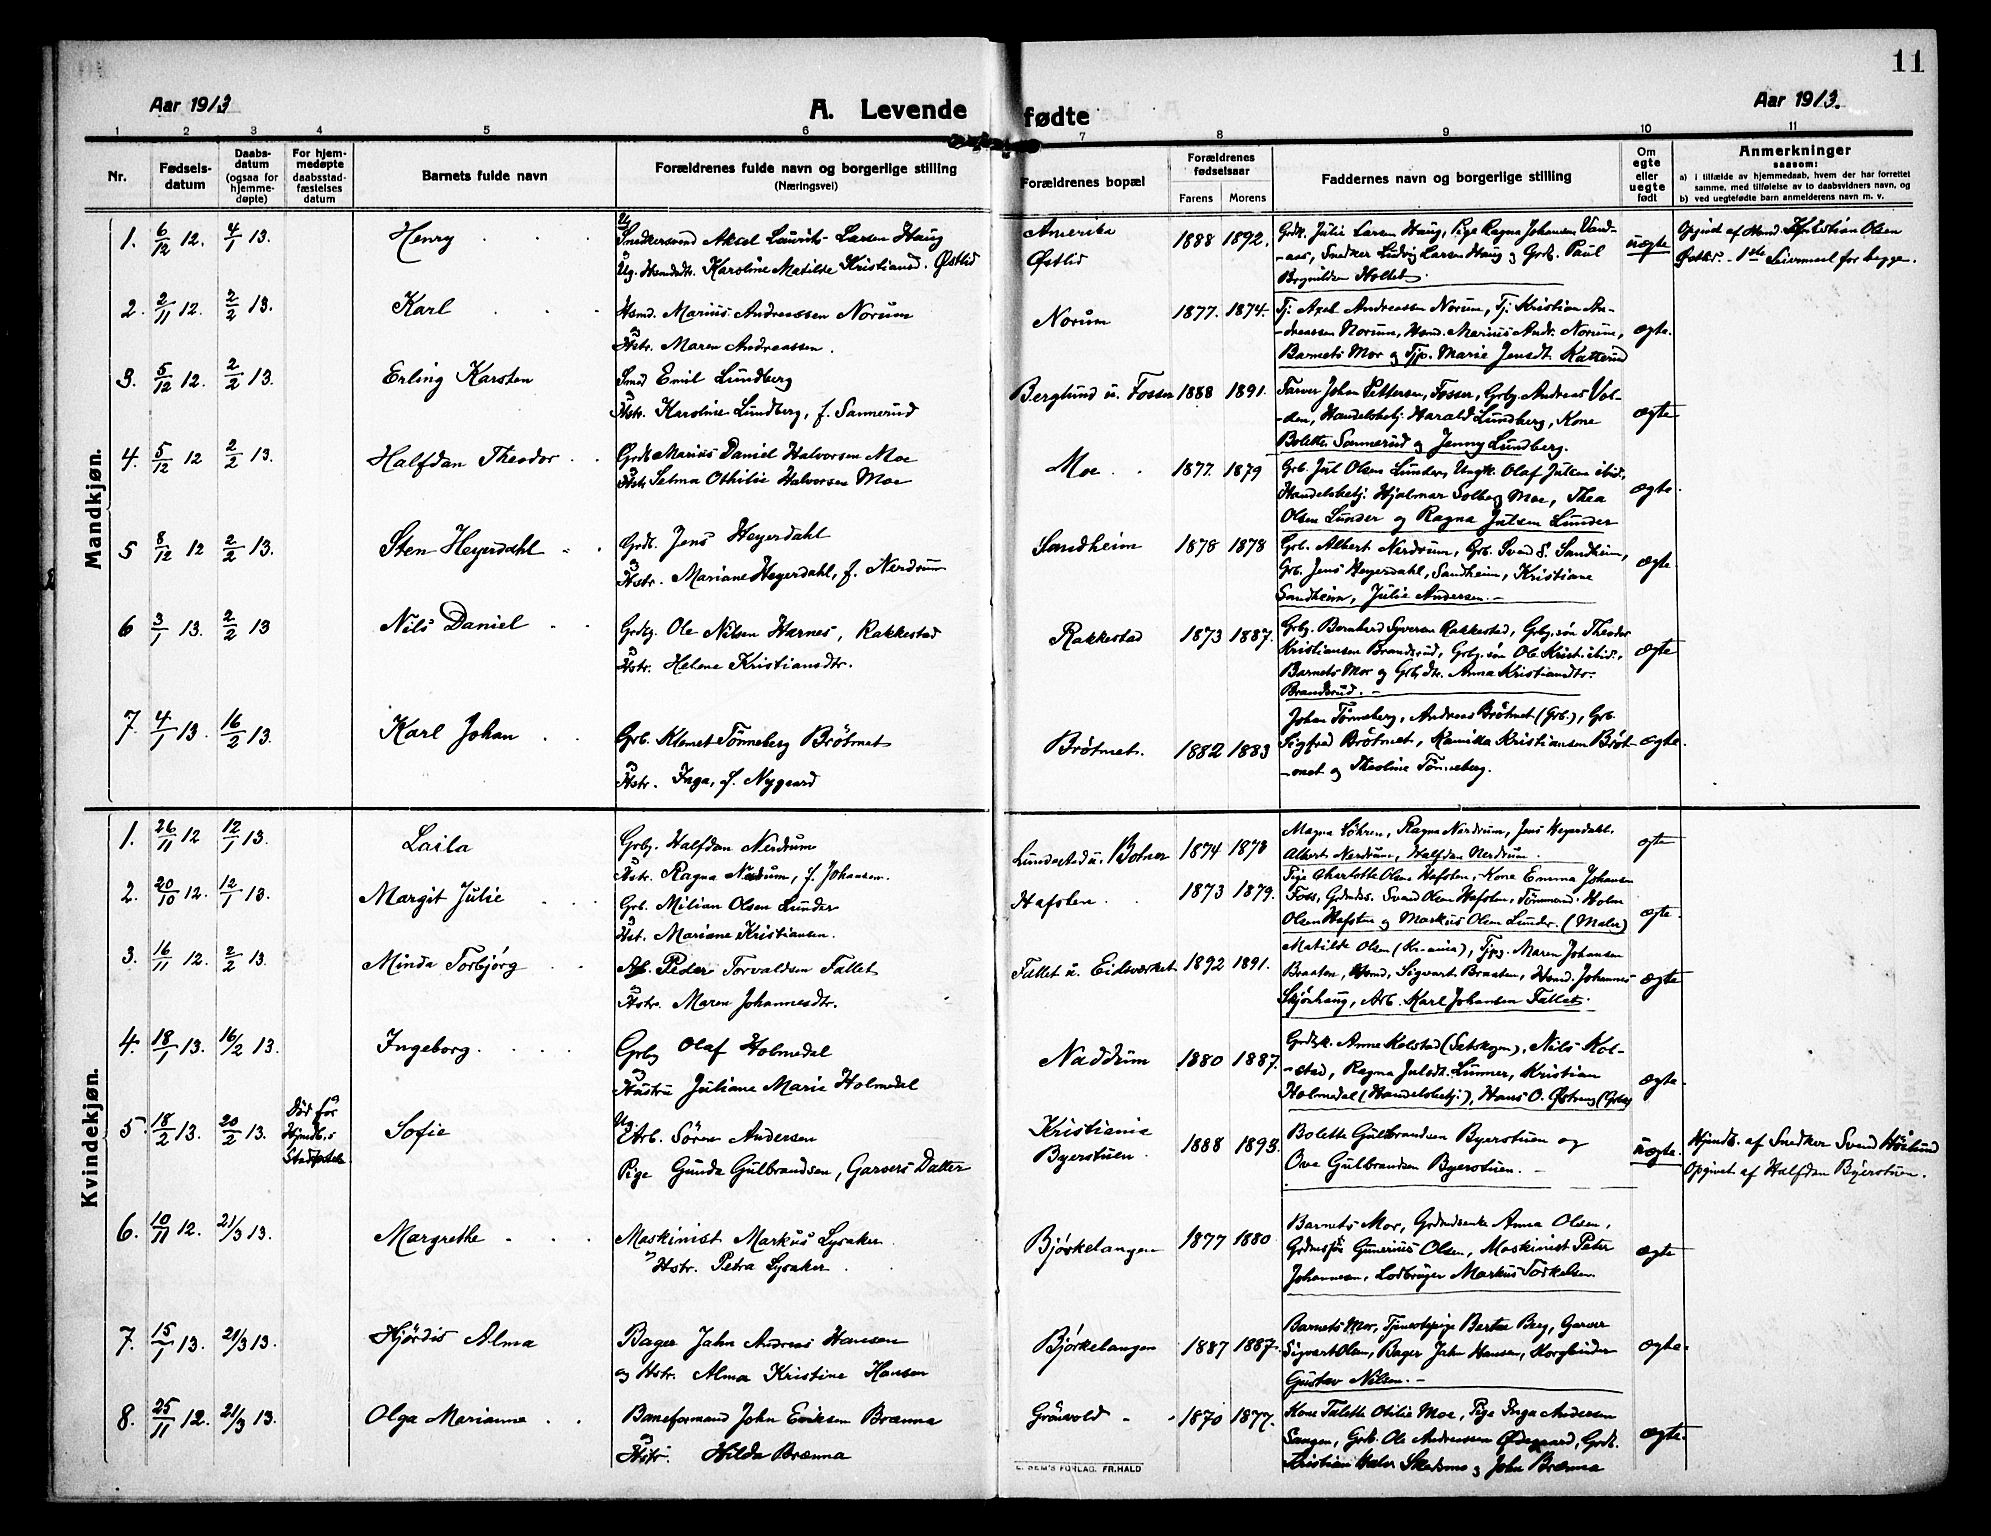 11
Aar 1913
A. Levende
fødte
Aar 1913.
1 2 3 4 5 6 7 8 9 10 11
Nr.
Fødsels-
datum
Daabs-
datum
(ogsaa for
hjemme-
døpte)
For hjem-
medøpte
daabsstad-
fæstelses
datum
Barnets fulde navn
Forældrenes fulde navn og borgerlige stilling
(Næringsvei)
Forældrenes bopæl
Forældrenes
fødselsaar
Farens Morens
Faddernes navn og borgerlige stilling
Om
egte
eller
uegte
født
Anmerkninger
saasom:
a) i tilfælde av hjemmedaab, hvem der har forrettet
samme, med tilføielse av to daabsvidners navn, og
b) ved uegtefødte barn anmelderens navn m. v.
Mandkjøn.
1. 6/12 12. 4/1 13. Henry
Ug. Snedkersvend Aksel Laurits Larsen Haug
Ug. Husmdtr. Karoline Matilde Kristiansd. Østlid
Amerika
Østlid
1888 1892.
Grdk. Julie Larsen Haug, Pige Ragna Johansen Vand-
-aas, Snedker Ludvig Larsen Haug og Grdb. Paul
Brynildsen Holtet.
uægte
Opgivet af Husmd. Kristian Olsen
Østlid. - 1ste Leiermaal for begge.
2. 2/11 12. 2/2 13. Karl
Husmd. Marius Andreassen Norum
og Hstr. Maren Andreassen.
Norum
1877. 1874.
Tj. Axel Andreassen Norum, Tj. Kristian An-
-dreassen Norum, Husmd. Marius Andr. Norum,
Barnets Mor og Tjp. Marie Jensdt. Katterud
ægte.
3. 5/12 12. 2/2 13. Erling Karsten
Smed Emil Lundberg
og Hstr. Karoline Lundberg, f. Sannerud
Berglund u. Fosser
1888 1891.
Farver Johan Pettersen, Fosser, Grbg. Andreas Vol-
-den, Handelsbetj. Harald Lundberg, Kone
Bolette Sannerud og Jenny Lundberg.
ægte
4. 5/12 12 2/2 13. Halfdan Theodor
Grdb. Marius Daniel Halvorsen Moe
og Hstr. Selma Othilie Halvorsen Moe
Moe
1877. 1879
Grb. Jul Olsen Lunder, Ungk. Olaf Julsen ibid.,
Handelsbetj. Hjalmar Solberg Moe, Thea
Olsen Lunder og Ragna Julsen Lunder
ægte.
5 8/12 12 2/2 13. Sten Heyerdahl
Grdb. Jens Heyerdahl
og Hstr. Mariane Heyerdahl, f. Nerdrum
Sandheim
1878 1878
Grb. Albert Nerdrum, Grb. Svend S. Sandheim,
Grb. Jens Heyerdahl, Sandheim, Kristiane
Sandheim, Julie Andersen.
ægte
6 3/1 13. 2/2 13 Nils Daniel
Grdbg. Ole Nilsen Harnes, Rakkestad
og Hstr. Helene Kristiansdtr.
Rakkestad
1873 1887.
Grbg. Bernhard Syversen Rakkestad, Grbg.søn Theodor
Kristiansen Branderud, Grbg.søn Ole Krist. ibid.,
Barnets Mor og Grbg.dtr. Anna Kristiansdtr.
Branderud.
ægte
7. 4/1 13. 16/2 13. Karl Johan
Grb. Klemet Tønneberg Brøtmet
og Hstr. Inga, f. Nygaard
Brøtmet.
1882 1883
Johan Tønneberg, Andreas Brøtmet (Grb.), Grb.
Sigfred Brøtmet, Kamilla Kristiansen Brøt-
-met og Theoline Tønneberg.
ægte.
Kvindekjøn.
1. 26/11 12 12/1 13. Laila
Grbg. Halfdan Nerdrum
og Hstr. Ragna Nerdrum, f. Johansen.
Lundestad u. Botner
1874 1878
Magna Løhren, Ragna Nerdrum, Jens Heyerdahl.
Albert Nerdrum, Halfdan Nerdrum.
ægte
2. 20/10 12. 12/1 13. Margit Julie
Grb. Milian Olsen Lunder
og Hst. Mariane Kristiansen.
Hafsten
1873 1879.
Pige Charlotte Olsen Hafsten, Kone Emma Johansen
Foss, Grdmds. Svend Olsen Hafsten, Tømmermd. Holm
Olsen Hafsten og Markus Olsen Lunder. (Maler)
ægte.
3. 16/11 12. 2/2 13. Minda Torbjørg
Arb. Peder Torvaldsen Fallet
og Hstr. Maren Johannesdtr.
Fallet u. Eidsverket
1892 1891.
Matilde Olsen (Kr-ania), Tjpg. Maren Johansen
Braaten, Husmd. Sigvart Braaten, Husmd. Johannes
Skjønhaug, Arb. Karl Johansen Fallet.
ægte
4. 18/1 13. 16/2 13. Ingeborg.
Grbg Olaf Holmedal
og Hustru Juliane Marie Holmedal
Naddrum
1880 1887.
Grdbk. Anne Kolstad (Setskogen), Nils Kol-
-stad, Ragna Julsdt. Lunner, Kristian
Holmedal (Handelsbetj.), Hans O. Østreng (Grbg)
ægte.
5. 18/2 13. 20/2 13.
Død før
Hjmdb.s
Stadfæstelse
Sofie
Ug. Arb. Søren Andersen
Pige Gunda Gulbrandsen, Garvers Datter
Kristiania
Byerstuen.
1888 1893.
Bolette Gulbrandsen Byerstuen og
Ove Gulbrandsen Byerstuen.
uægte.
Hjmdb. af Snedker Svend Høilund
Opgivet af Halfdan Byerstuen.
6. 10/11 12. 21/3 13. Margrethe
Maskinist Markus Lysaker
og Hstr. Petra Lysaker.
Bjørkelangen
1877 1880
Barnets Mor, Grdmdsenke Anna Olsen,
Grdmdsføs Gunerius Olsen, Maskinist Peter
Johannesen, Lodbruger Markus Torkelsen.
ægte
7. 15/1 13. 21/3 13. Hjørdis Alma
Bager Jahn Andreas Hansen
og Hstr. Alma Kristine Hansen
Bjørkelangen
1887 1887.
Barnets Mor, Tjenestepige Berta Berg, Garver
Sigvart Olsen, Bager Jahn Hansen, Korgbinder
Gustav Nilsen.
ægte.
8. 25/11 12. 21/3 13. Olga Marianne
Baneformand John Eriksen Brænna
og Hstr. Hilda Brænna
Grønvold
1870 1877.
Kone Talette Otilie Moe, Pige Inga Andersen
Sangen, Grb. Ole Andreassen Ødegaard, Grdb.
Kristian Haler Skedsmo og John Brænna
ægte.
E. SEM'S FORLAG. FR.HALD